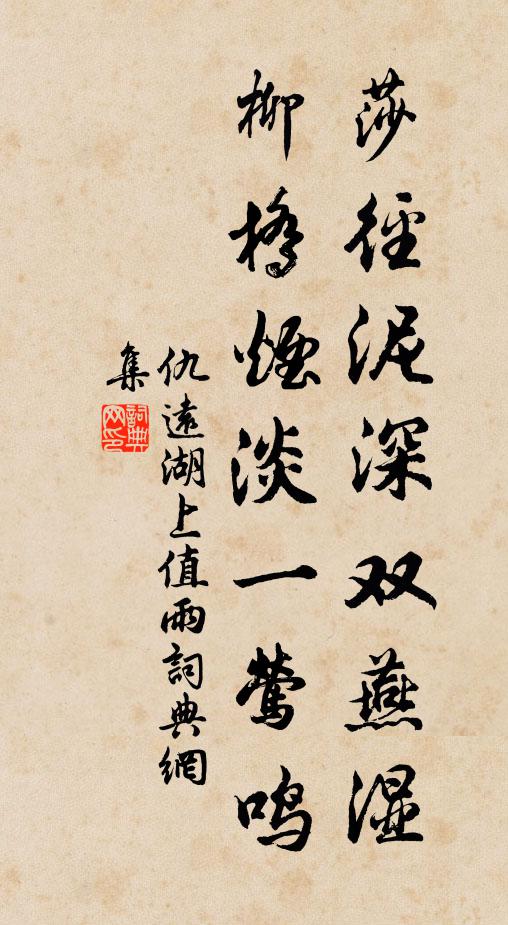 莎径泥深双燕湿
柳桥烟淡一莺鸣
仇远湖上值雨詞典網
集
詞典
网印